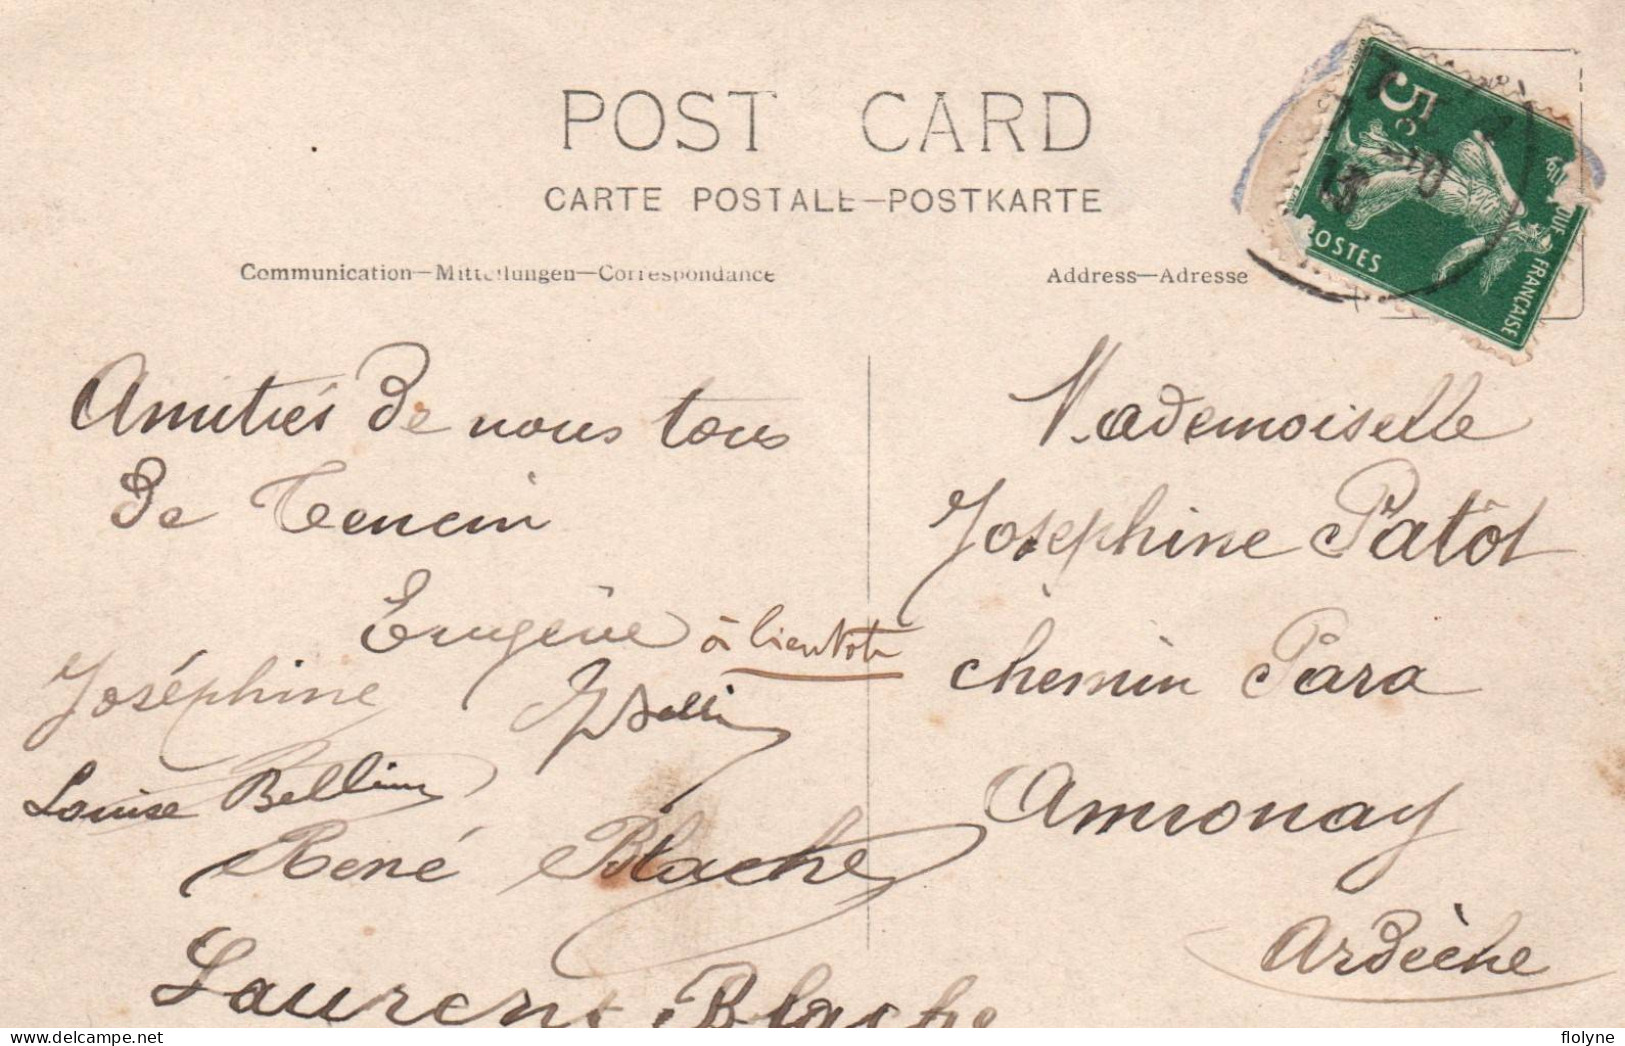 POST CARD
CARTE POSTALE—POSTKARTE
Communication—Mitteilungen—Correspondance
Address—Adresse
5c
POSTES
FRANÇAISE
10
Amitiés de nous tous
de Tencin
Eugène à bientôt
Joséphine
Louise Bellin
René Blache
Laurent Blache
Mademoiselle
Josephine Patôt
chemin Para
Amnonay
Ardèche
flolyne